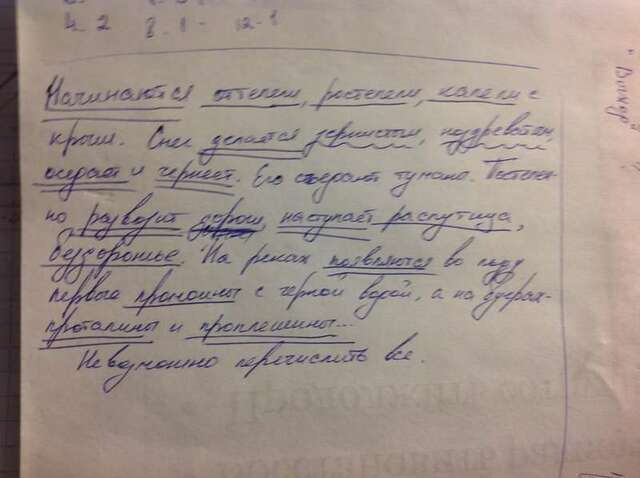 4. 2 8. 1 - 12 - 1
Начинаются оттепели, ростепели, капели с
крыш. Снег делается зернистым, ноздреватым,
оседает и чернеет. Его съедают туманы. Постепен-
но развозит дороги, наступает распутица,
бездорожье. На реках появляются во льду
первые промоины с черной водой, а на буграх-
проталины и проплешины...
Невозможно перечислить все.